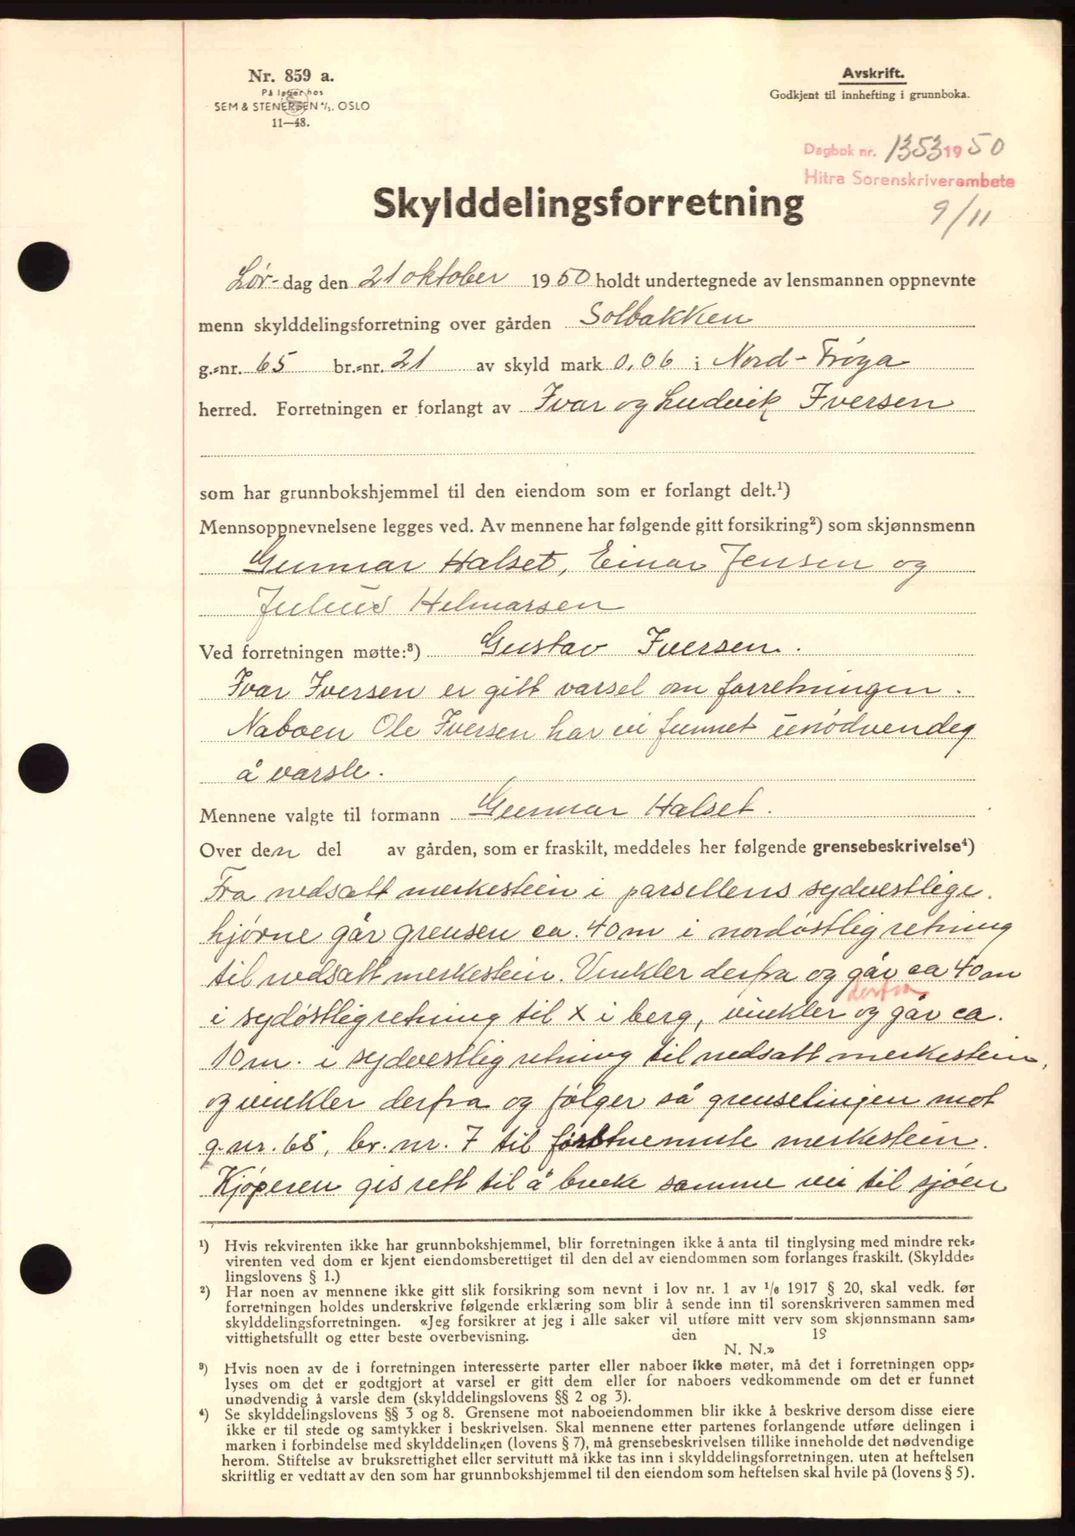 Nr. 859 a.
På lager hos
SEM & STENERSEN A/S. OSLO
11—48.
Avskrift.
Godkjent til innhefting i grunnboka.
Dagbok nr. 1353 1950
Hitra Sorenskriverembete
9/11
Skylddelingsforretning
Lør-dag den 21 oktober 1950 holdt undertegnede av lensmannen oppnevnte
menn skylddelingsforretning over gården Solbakken
g.=nr. 65 br.=nr. 21 av skyld mark 0,06 i Nord-Frøya
herred. Forretningen er forlangt av Ivar og Ludvik Iversen
som har grunnbokshjemmel til den eiendom som er forlangt delt.¹)
Mennsoppnevnelsene legges ved. Av mennene har følgende gitt forsikring²) som skjønnsmenn
Gunnar Halset, Einar Jensen og
Julius Helmarsen
Ved forretningen møtte:³) Gustav Iversen.
Ivar Iversen er gitt varsel om forretningen.
Naboen Ole Iversen har vi funnet unødvendig
å varsle.
Mennene valgte til formann Gunnar Halset.
Over den del av gården, som er fraskilt, meddeles her følgende grensebeskrivelse⁴)
Fra nedsatt merkestein i parsellens sydvestlige
hjørne går grensen ca. 40m i nordøstlig retning
til nedsatt merkestein. Vinkler derfra og går ca 40m
derfra
i sydøstlig retning til x i berg, vinkler og går ca.
10m. i sydvestlig retning til nedsatt merkestein,
og vinkler derfra og følger så grenselinjen mot
g.nr. 65, br.nr. 7 til førstnevnte merkestein.
Kjøperen gis rett til å bruke samme vei til sjøen
¹) Hvis rekvirenten ikke har grunnbokshjemmel, blir forretningen ikke å anta til tinglysing med mindre rek=
virenten ved dom er kjent eiendomsberettiget til den del av eiendommen som forlanges fraskilt. (Skyldde=
lingslovens § 1.)
²) Har noen av mennene ikke gitt slik forsikring som nevnt i lov nr. 1 av 1/6 1917 § 20, skal vedk. før
forretningen holdes underskrive følgende erklæring som blir å sende inn til sorenskriveren sammen med
skylddelingsforretningen. «Jeg forsikrer at jeg i alle saker vil utføre mitt verv som skjønnsmann sam=
vittighetsfullt og etter beste overbevisning. den 19
N. N.»
³) Hvis noen av de i forretningen interesserte parter eller naboer ikke møter, må det i forretningen opp=
lyses om det er godtgjort at varsel er gitt dem eller for naboers vedkommende om det er funnet
unødvendig å varsle dem (skylddelingslovens §§ 2 og 3).
⁴) Se skylddelingslovens §§ 3 og 8. Grensene mot naboeiendommen blir ikke å beskrive dersom disse eiere
ikke er til stede og samtykker i beskrivelsen. Skal mennene etter partenes forlangende utføre delingen i
marken i forbindelse med skylddelingen (lovens § 7), må grensebeskrivelsen tillike inneholde det nødvendige
herom. Stiftelse av bruksrettighet eller servitutt må ikke tas inn i skylddelingsforretningen. uten at heftelsen
skriftlig er vedtatt av den som har grunnbokshjemmel til den eiendom som heftelsen skal hvile på (lovens § 5).